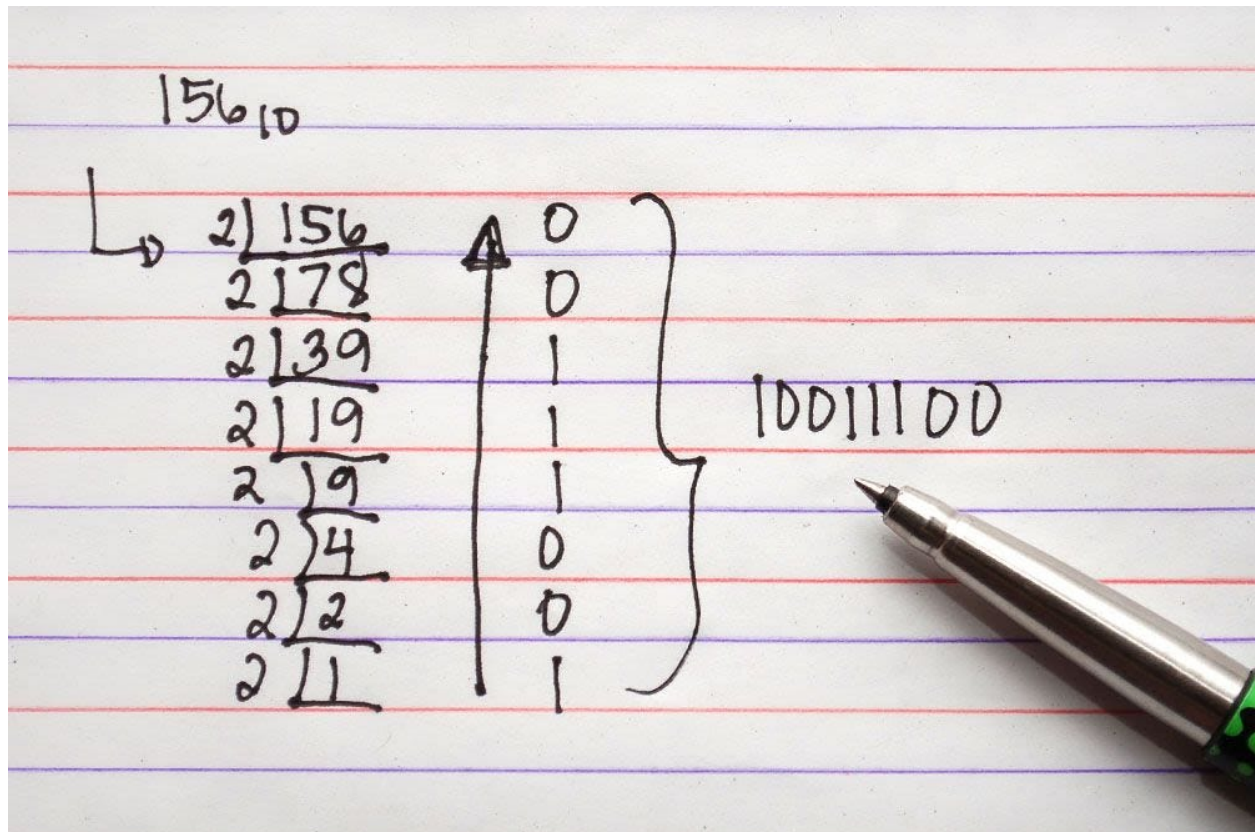 156₁₀
2 156 0
2 78 0
2 39 1
2 19 1
2 9 1
2 4 0
2 2 0
2 1 1
10011100